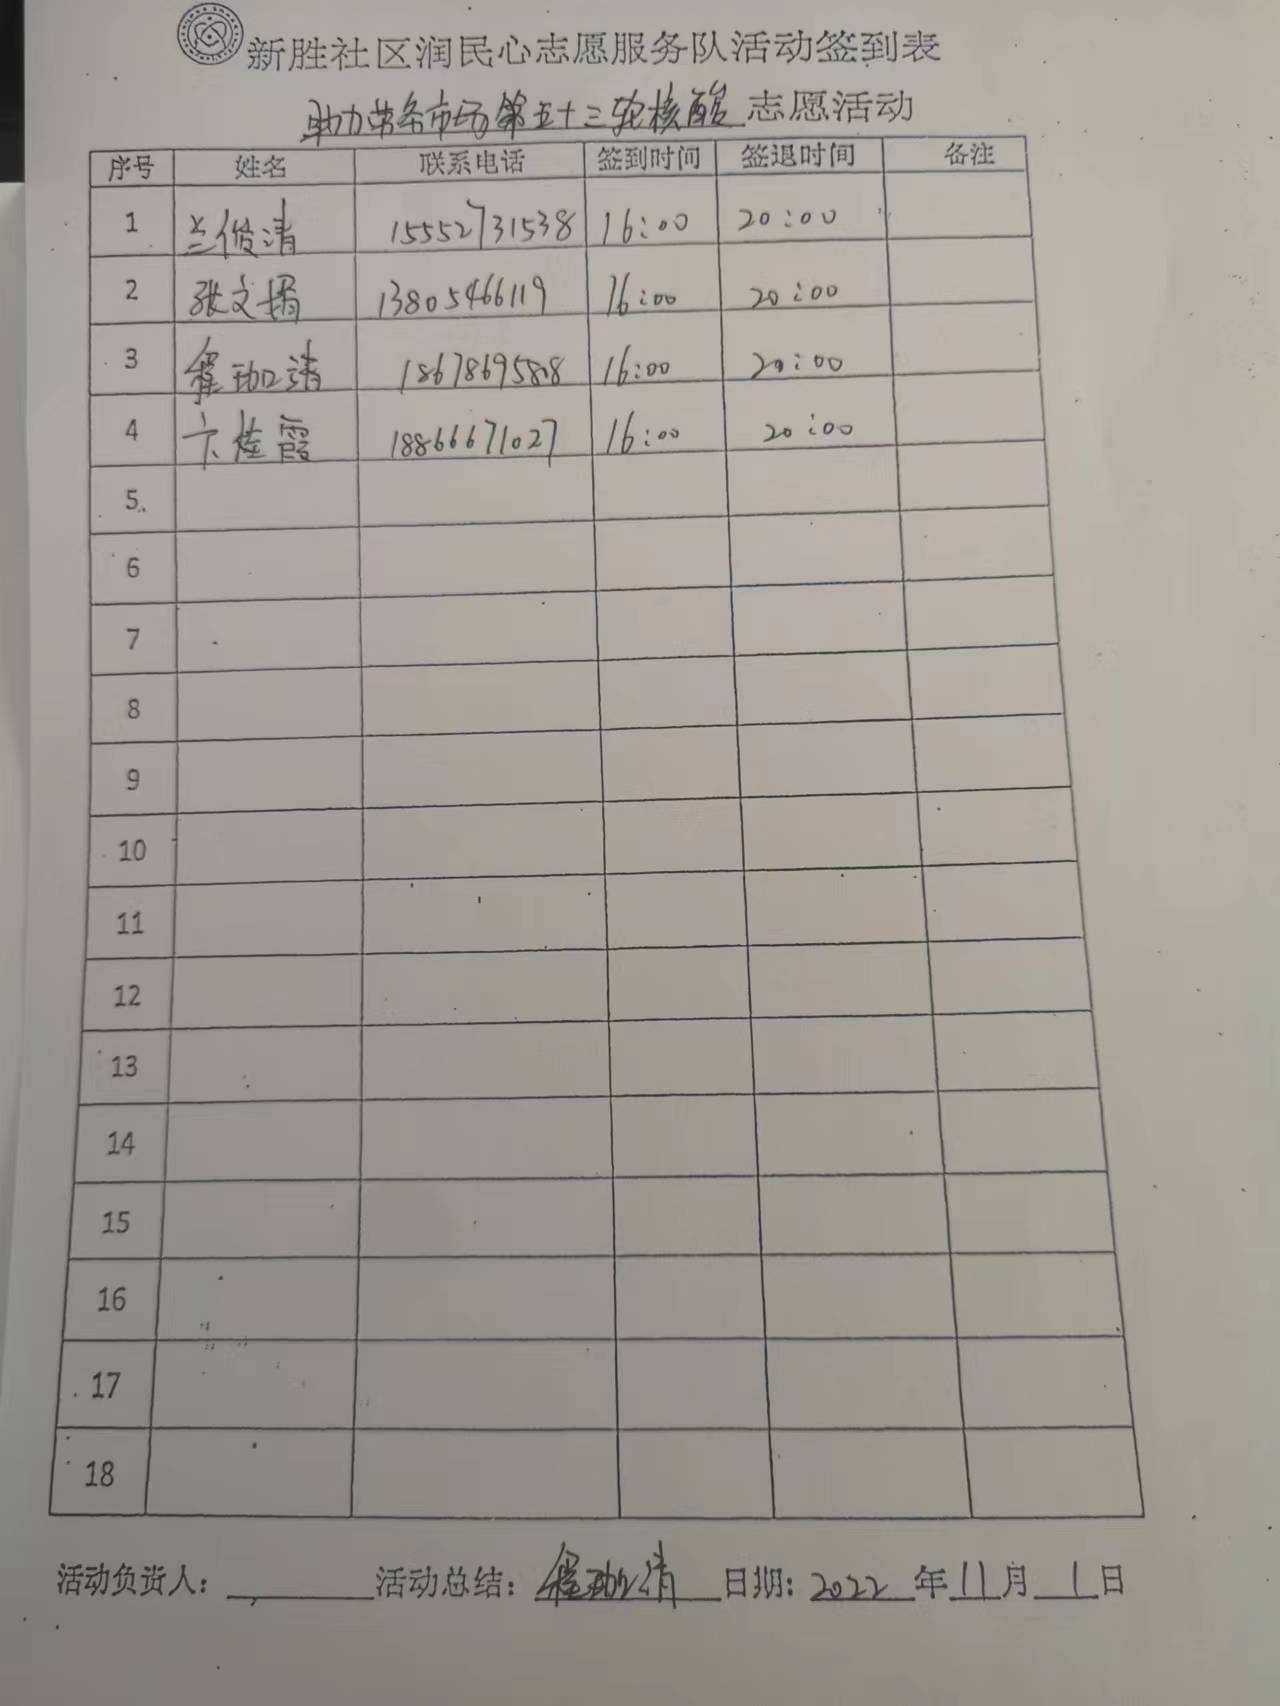 新胜社区润民心志愿服务队活动签到表
助力劳务市场第五十三轮核酸志愿活动
序号 姓名 联系电话 签到时间 签退时间 备注
1 兰俊清 15552731538 16:00 20:00
2 张文娟 13805466119 16:00 20:00
3 18678695808 16:00 20:00
4 卞桂霞 18866671027 16:00 20:00
5
6
7
8
9
10
11
12
13
14
15
16
17
18
活动负责人: 活动总结: 日期: 2022 年 11 月 1 日